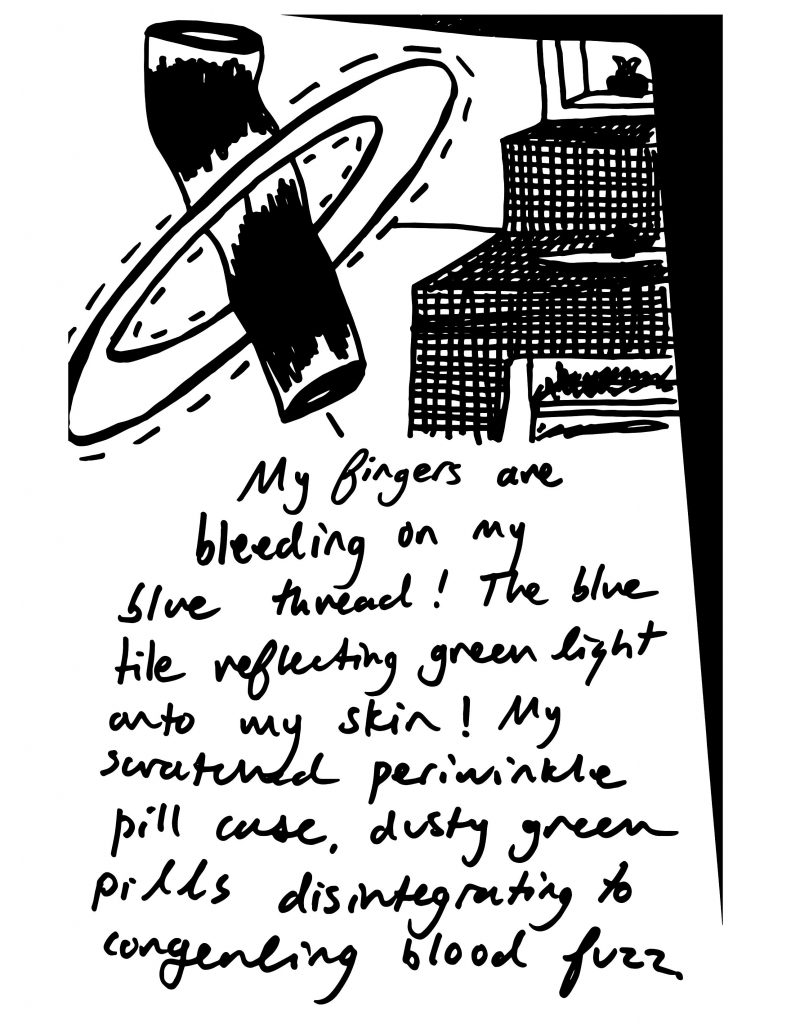 My fingers are
bleeding on my
blue thread! The blue
tile reflecting green light
onto my skin! My
scratched periwinkle
pill case, dusty green
pills disintegrating to
congealing blood fuzz.